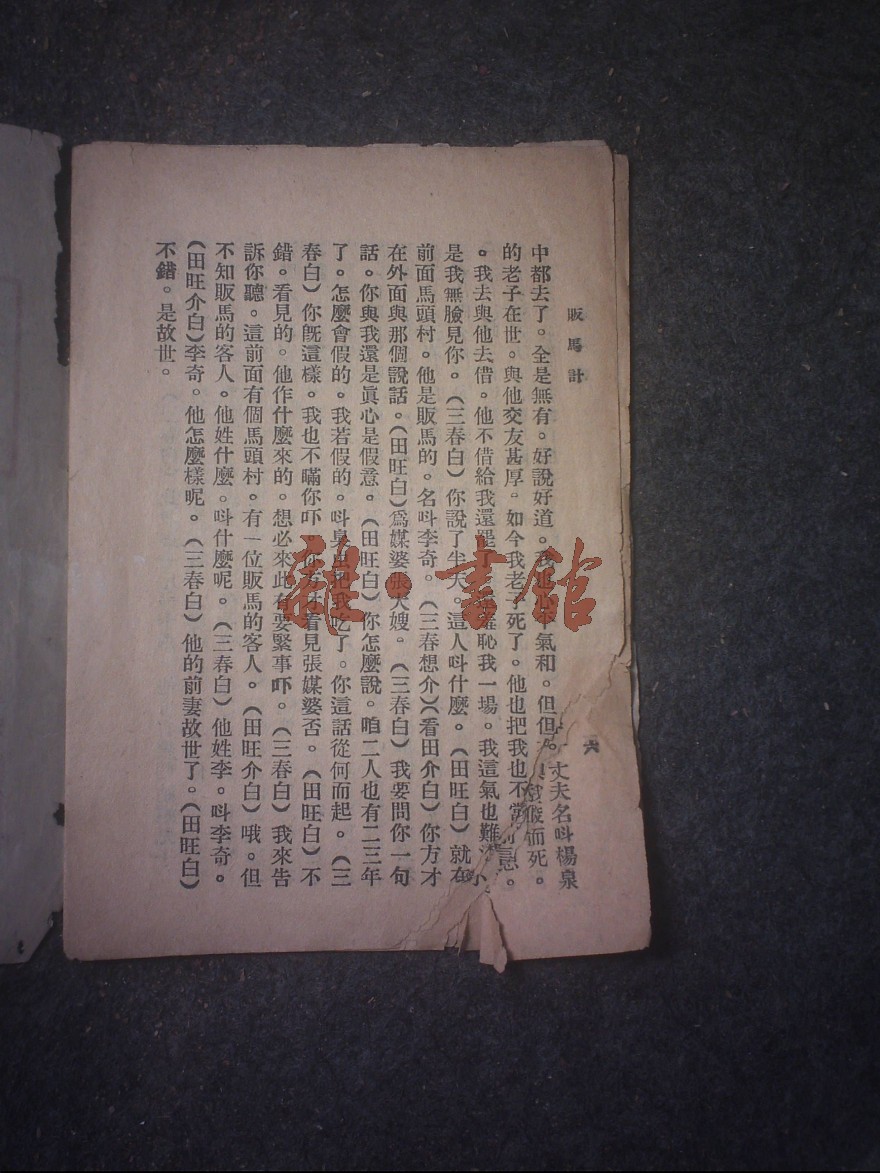 販馬計
六
中都去了。全是無有。好說好道。我心平氣和。但但。
的老子在世。與他交友甚厚。如今我老子死了。他也把我也不當
。我去與他去借。他不借給我還罷了。羞恥我一場。我這氣也難
是我無臉見你。(三春白)你說了半天。這人呌什麼。(田旺白)就在
前面馬頭村。他是販馬的。名呌李奇。(三春想介)(看田介白)你方才
在外面與那個說話。(田旺白)爲媒婆張大嫂。(三春白)我要問你一句
話。你與我還是眞心是假意。(田旺白)你怎麼說。咱二人也有二三年
了。怎麼會假的。我若假的。呌臭虫把我吃了。你這話從何而起。(三
春白)你旣這樣。我也不瞞你吓。你方才看見張媒婆否。(田旺白)不
錯。看見的。他作什麼來的。想必來此有要緊事吓。(三春白)我來告
訴你聽。這前面有個馬頭村。有一位販馬的客人。(田旺介白)哦。但
不知販馬的客人。他姓什麼。呌什麼呢。(三春白)他姓李。呌李奇。
(田旺介白)李奇。他怎麼樣呢。(三春白)他的前妻故世了。(田旺白)
不錯。是故世。
丈夫名呌楊泉
而死。
龍·書館